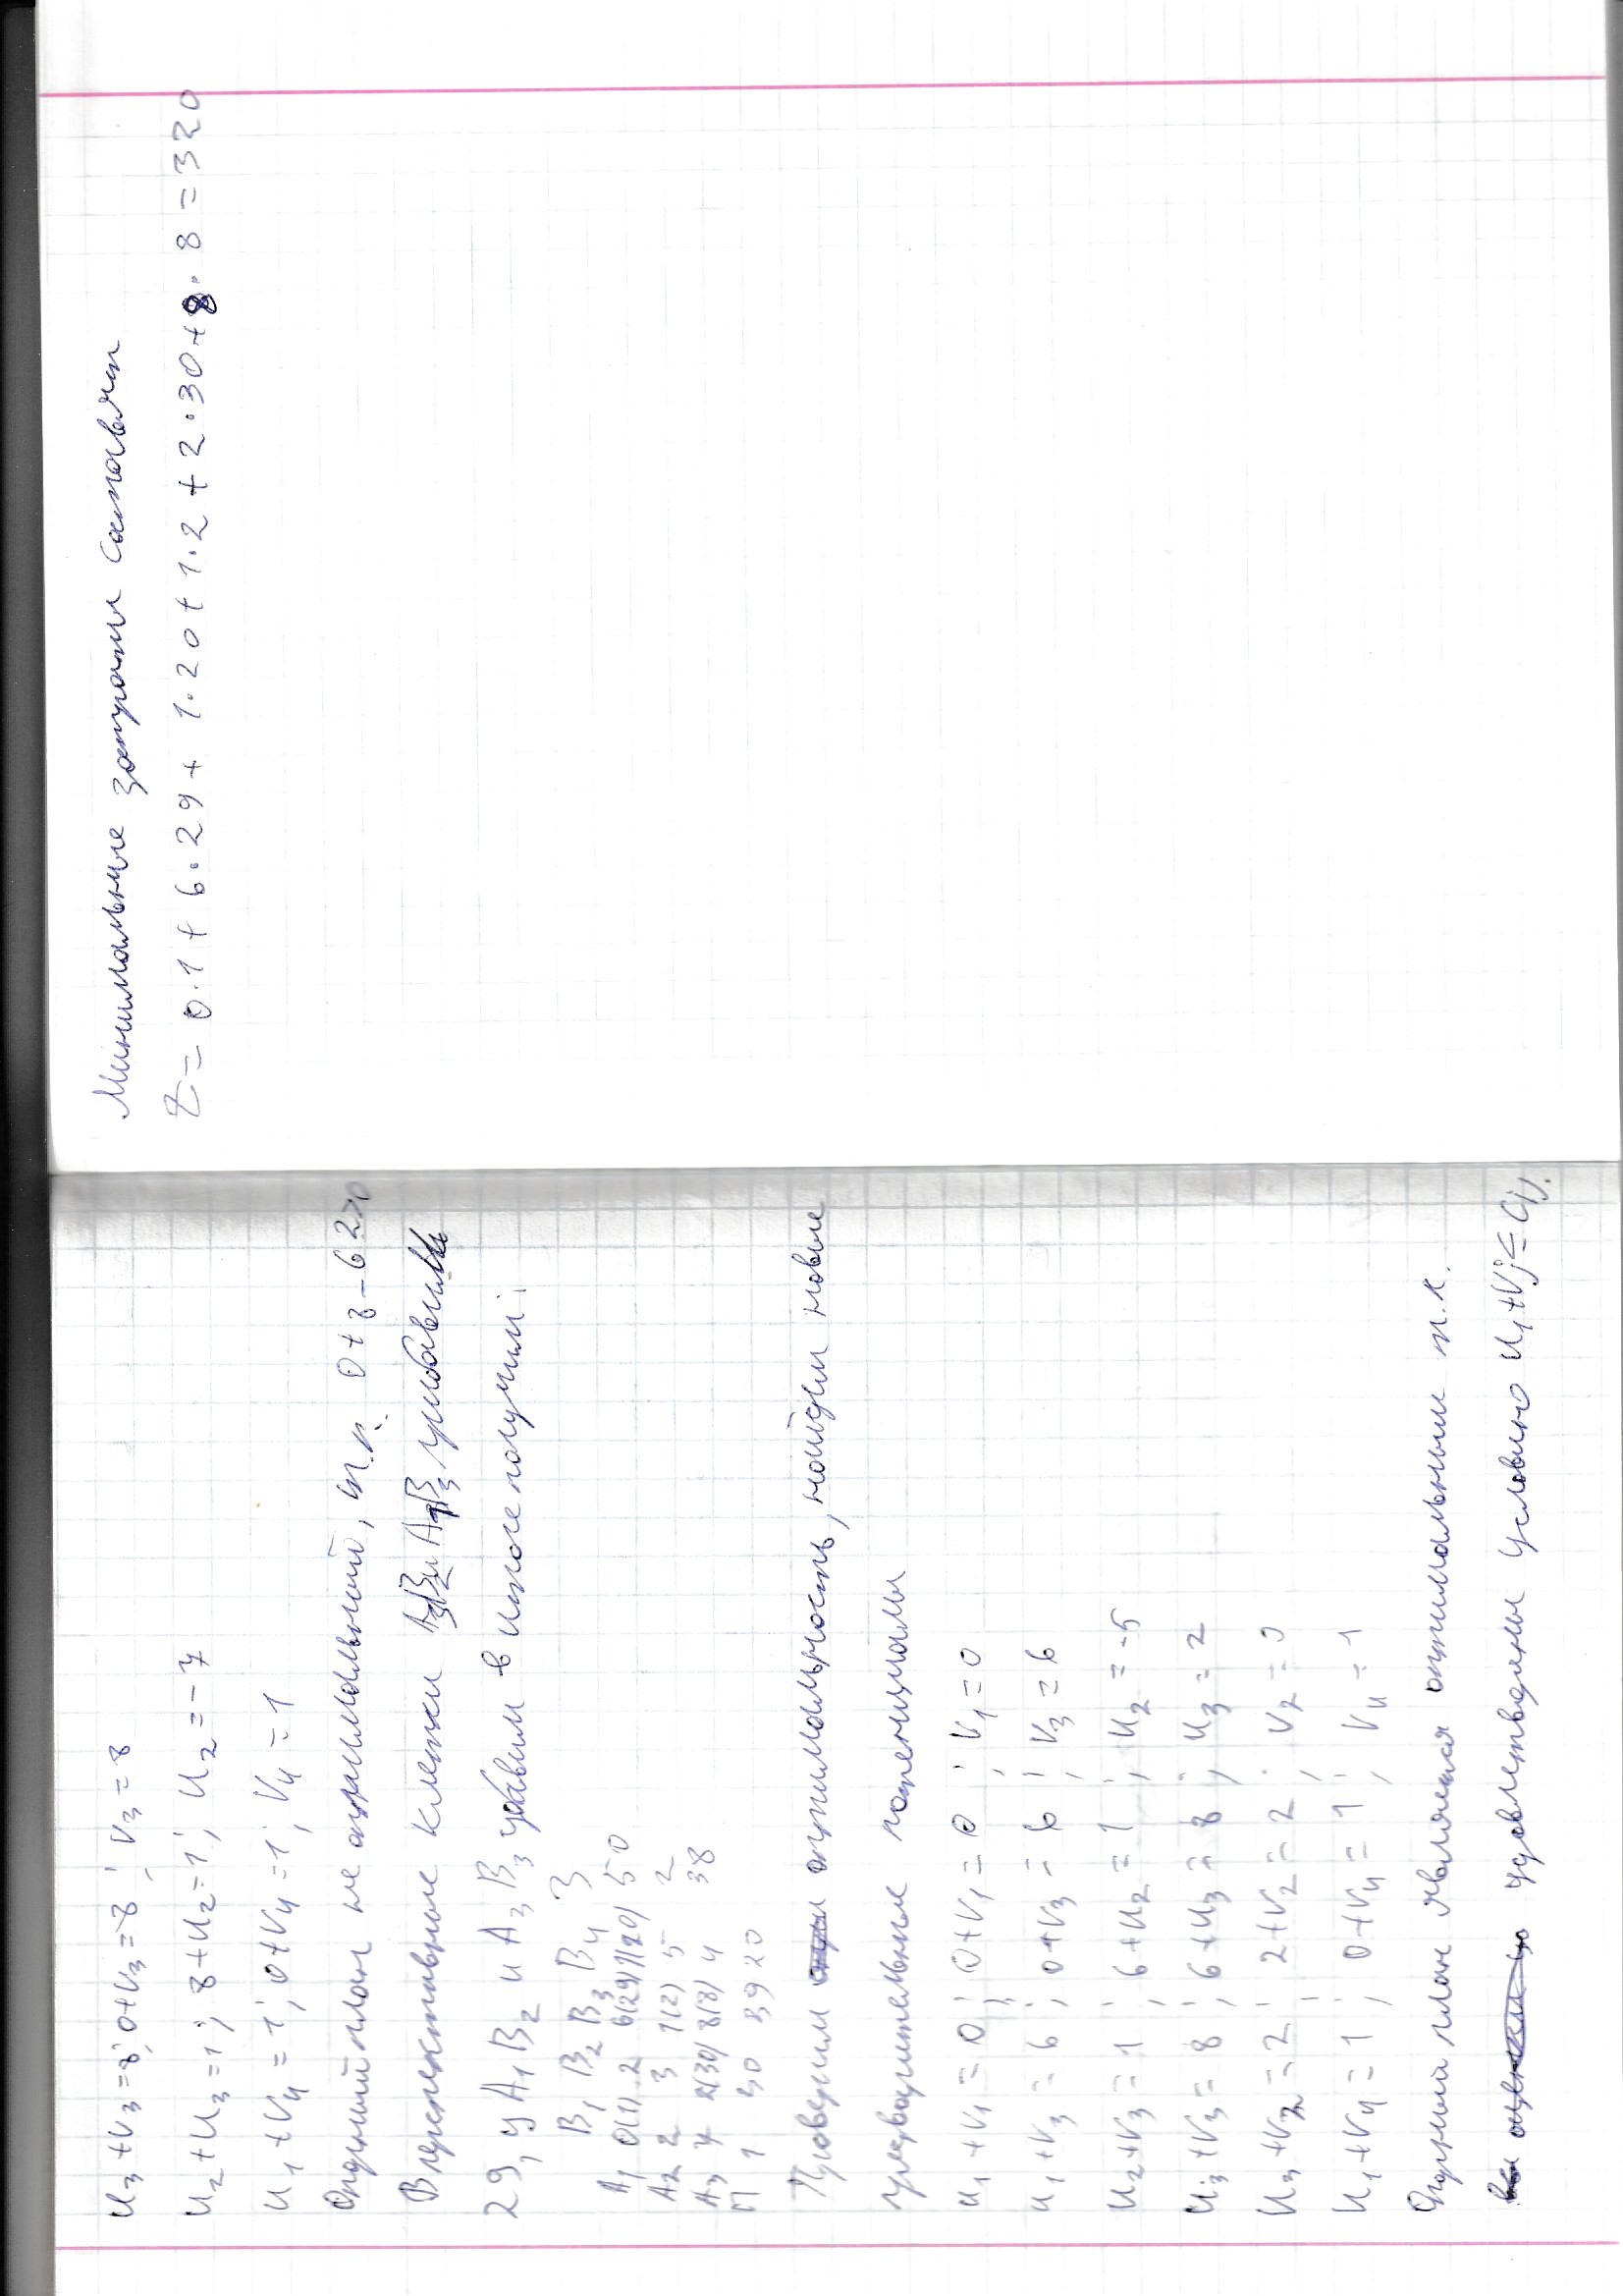 u₃+v₃=8; 0+v₃=8; v₃=8
u₂+u₃=1; 8+u₂=1; u₂=-7
u₁+v₄=1; 0+v₄=1; v₄=1
Опорный план не оптимальный, т.к. 0+8-6=2>0
В перспективные клетки A₃B₂ и A₁B₃ прибавим
29, у A₁B₂ и A₃B₃ убавим в итоге получим:
B₁ B₂ B₃ B₄ З
A₁ 0(1) 2 6(29) 1(20) 50
A₂ 2 3 1(2) 5 2
A₃ 7 2(30) 8(8) 4 38
П 1 30 39 20
Проверим оптимальность, найдем новые
предварительные потенциалы
u₁+v₁=0; 0+v₁=0; v₁=0
u₁+v₃=6; 0+v₃=6; v₃=6
u₂+v₃=1; 6+u₂=1; u₂=-5
u₃+v₃=8; 6+u₃=8; u₃=2
u₃+v₂=2; 2+v₂=2; v₂=0
u₁+v₄=1; 0+v₄=1; v₄=1
Опорный план является оптимальным т.к.
удовлетворяны условию u₁+vj≤cij.
Минимальные затраты составят
Z= 0·1+6·29+1·20+1·2+2·30+8·8=320